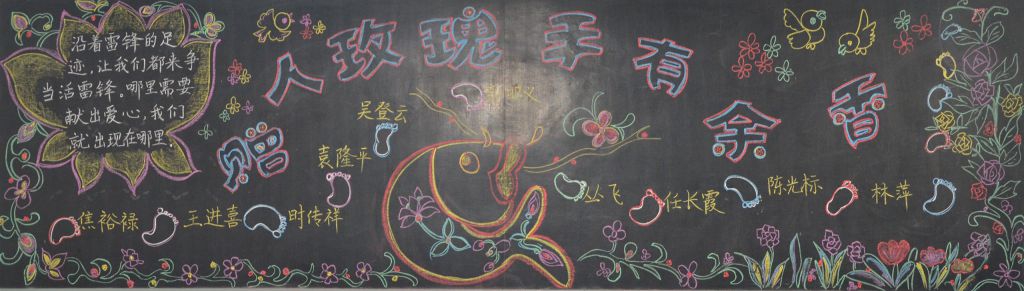 沿着雷锋的足
迹,让我们都来争
当活雷锋。哪里需要
献出爱心,我们
就出现在哪里。
赠人玫瑰手有余香
焦裕禄
王进喜
时传祥
袁隆平
吴登云
丛飞
任长霞
陈光标
林萍